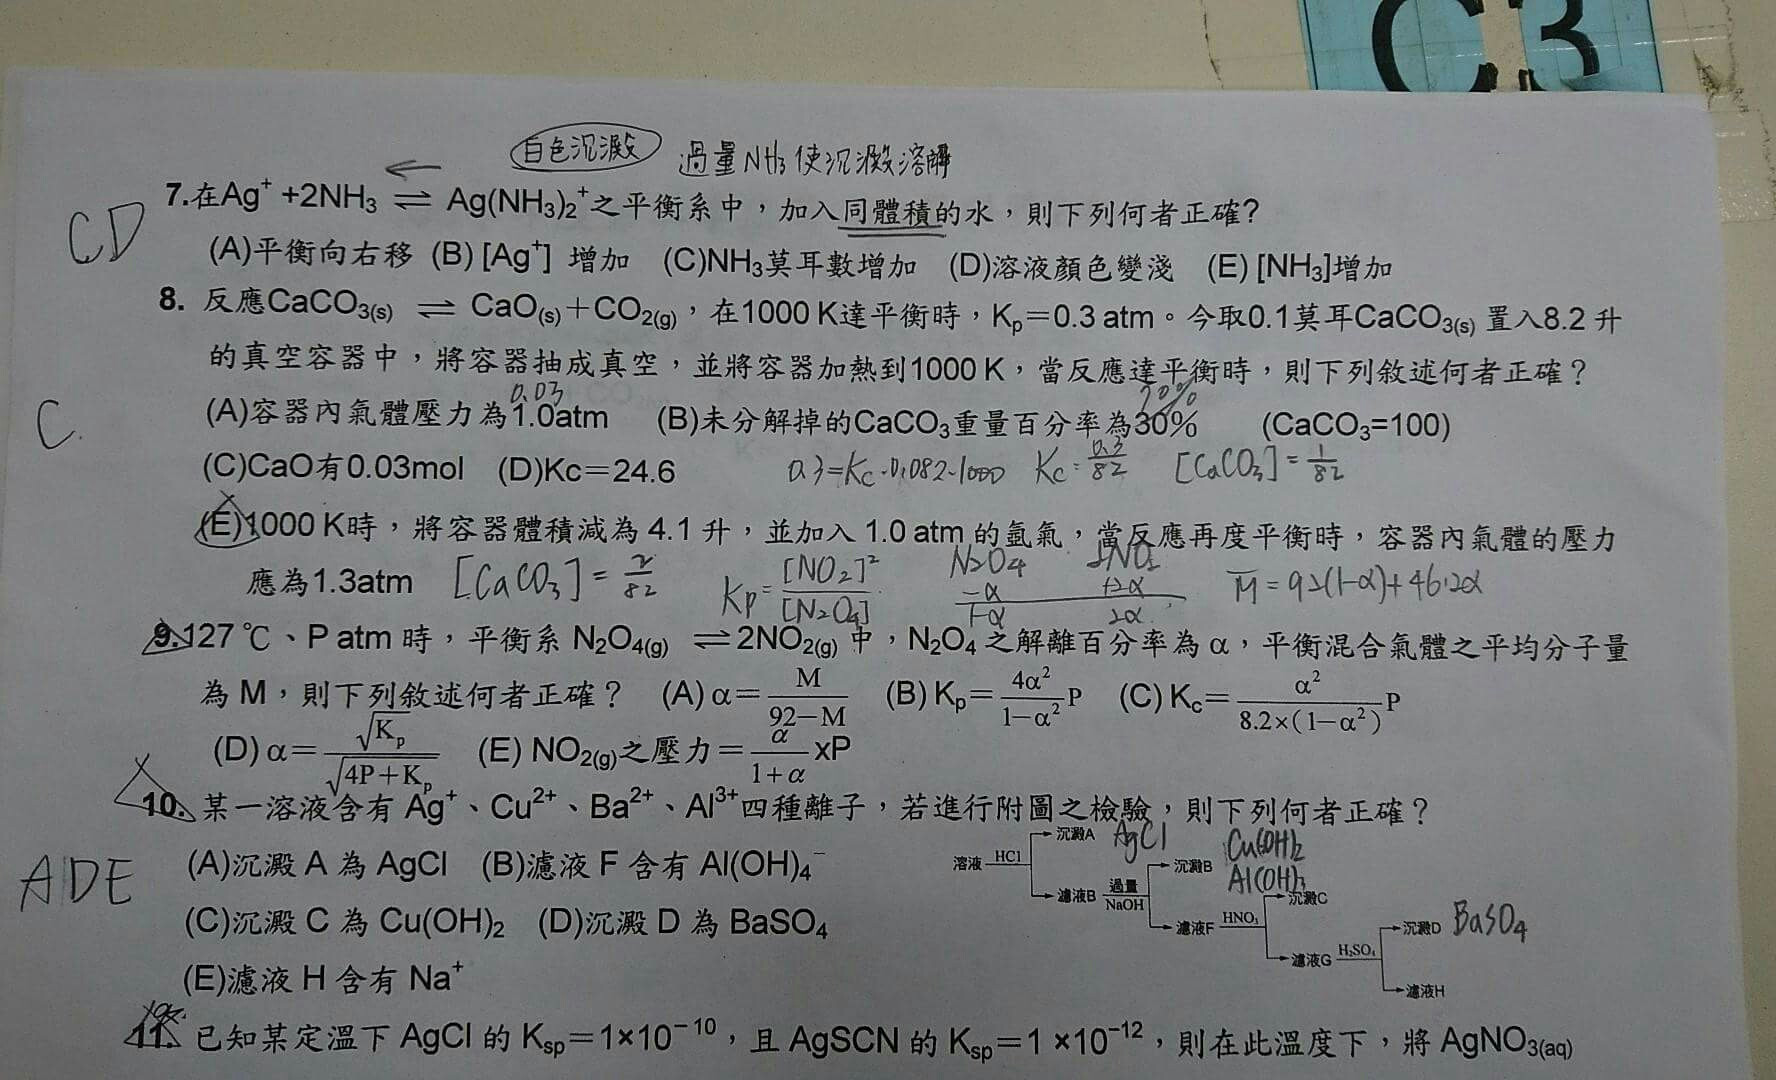 C3
白色沉澱 過量NH3使沉澱溶解
←
7.在Ag⁺ +2NH₃ ⇌ Ag(NH₃)₂⁺之平衡系中，加入同體積的水，則下列何者正確?
CD
(A)平衡向右移 (B) [Ag⁺] 增加 (C)NH₃莫耳數增加 (D)溶液顏色變淺 (E) [NH₃]增加
8. 反應CaCO₃(s) ⇌ CaO(s)＋CO₂(g)，在1000 K達平衡時，Kp＝0.3 atm。今取0.1莫耳CaCO₃(s) 置入8.2 升
的真空容器中，將容器抽成真空，並將容器加熱到1000 K，當反應達平衡時，則下列敘述何者正確？
0.03 70%
C
(A)容器內氣體壓力為1.0atm (B)未分解掉的CaCO₃重量百分率為30% (CaCO₃=100)
(C)CaO有0.03mol (D)Kc＝24.6 0.3=Kc·0.082·1000 Kc=0.3/82 [CaCO₃]=1/82
(E)1000 K時，將容器體積減為 4.1 升，並加入 1.0 atm 的氬氣，當反應再度平衡時，容器內氣體的壓力
應為1.3atm [CaCO₃]=2/82 Kp=[NO₂]²/[N₂O₄] N₂O₄ 2NO₂ M̅=92(1-α)+46·2α
-α +2α
1-α 2α
9.127 ℃、P atm 時，平衡系 N₂O₄(g) ⇌2NO₂(g) 中，N₂O₄ 之解離百分率為 α，平衡混合氣體之平均分子量
為 M，則下列敘述何者正確？ (A) α＝M/(92－M) (B) Kp＝4α²/(1－α²)P (C) Kc＝α²/(8.2×(1－α²))P
(D) α＝√Kp/√(4P＋Kp) (E) NO₂(g)之壓力＝α/(1+α) xP
10. 某一溶液含有 Ag⁺、Cu²⁺、Ba²⁺、Al³⁺四種離子，若進行附圖之檢驗，則下列何者正確？
ADE
(A)沉澱 A 為 AgCl (B)濾液 F 含有 Al(OH)₄⁻
(C)沉澱 C 為 Cu(OH)₂ (D)沉澱 D 為 BaSO₄
(E)濾液 H 含有 Na⁺
溶液 HCl 沉澱A AgCl
濾液B 過量 NaOH 沉澱B Cu(OH)₂ Al(OH)₃
濾液F HNO₃ 沉澱C
濾液G H₂SO₄ 沉澱D BaSO₄
濾液H
11. 已知某定溫下 AgCl 的 Ksp＝1×10⁻¹⁰，且 AgSCN 的 Ksp＝1 ×10⁻¹²，則在此溫度下，將 AgNO₃(aq)